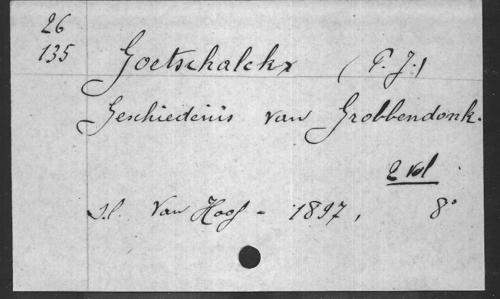 26
135
Goetschalckx (P. J.)
Geschiedenis van Grobbendonk.
2 vol
s.l. Van Hoof - 1897, 8°